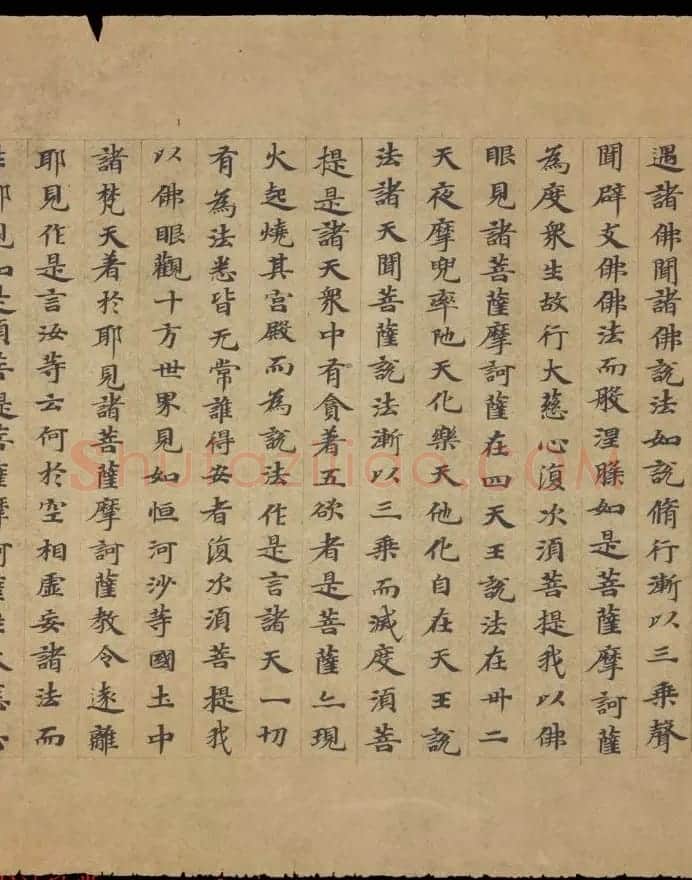 遇諸佛聞諸佛說法如說脩行漸以三乘聲
聞辟支佛佛法而般涅槃如是菩薩摩訶薩
為度衆生故行大慈心復次須菩提我以佛
眼見諸菩薩摩訶薩在四天王說法在卅二
天夜摩兜率陁天化樂天他化自在天王說
法諸天聞菩薩說法漸以三乘而滅度須菩
提是諸天衆中有貪著五欲者是菩薩亦現
火起燒其宮殿而為說法作是言諸天一切
有為法悉皆无常誰得安者復次須菩提我
以佛眼觀十方世界見如恒河沙等國土中
諸梵天著於耶見諸菩薩摩訶薩教令遠離
耶見作是言汝等云何於空相虛妄諸法而
Shufaziliao.COM